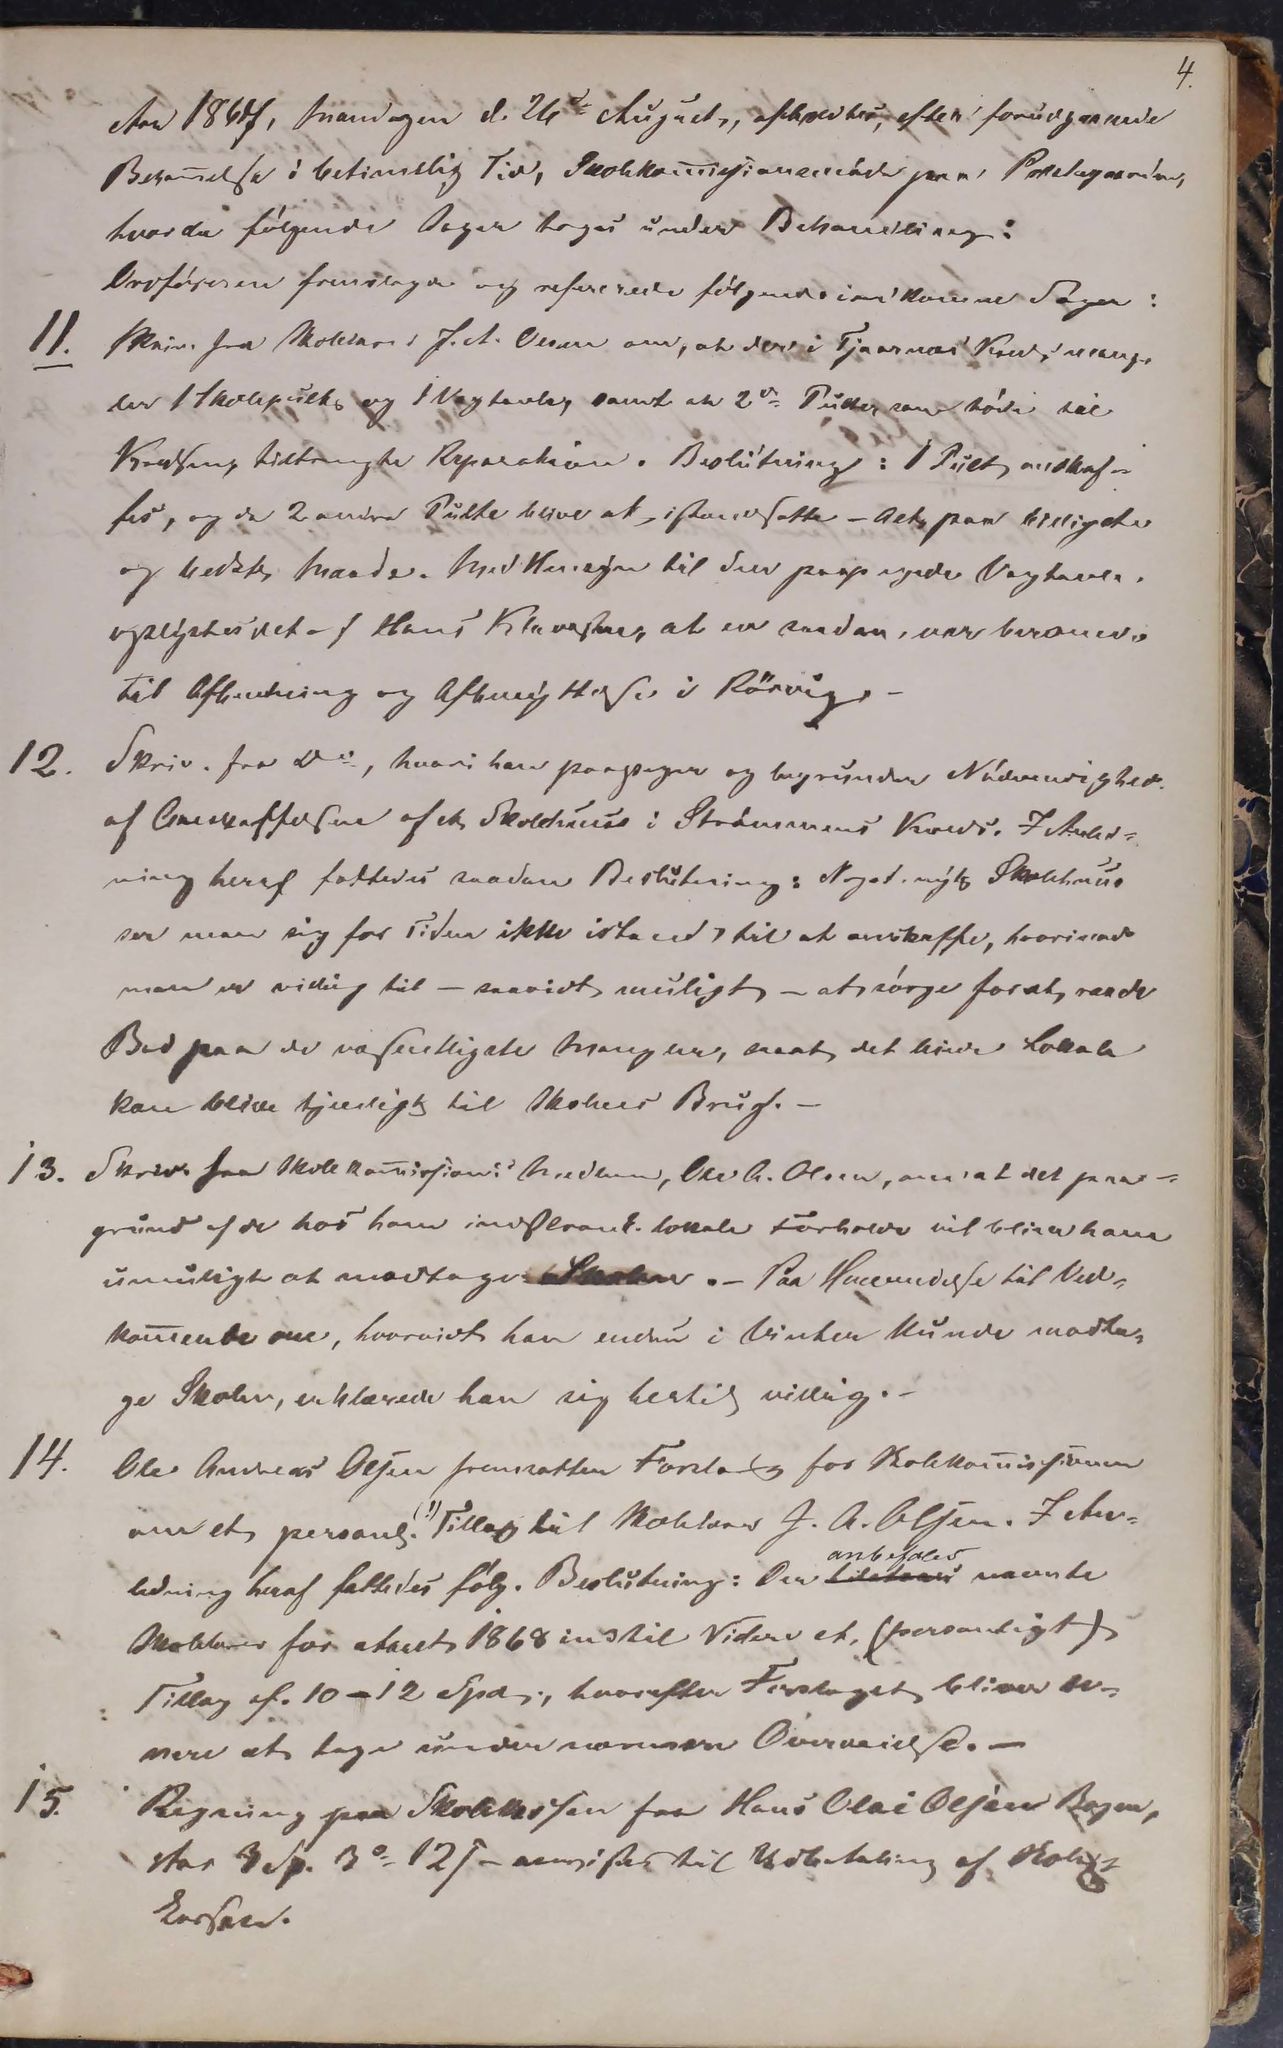 4.
Aar 1867, Mandagen d. 26de August, afholdtes, efter forudgaaende
Bekjendtgjørelse i betimelig Tid, Skolekommissionsmöde paa Præstegaarden,
hvorda følgende Sager toges under Behandling:
Ordføreren fremlagde og refererede følgende indkomne Sager:
11. Skriv. fra Skolelærer J. A. Olsen om, at der i Tjaarnæs Kreds mang-
ler 1 Skolepult og 1 Vægtavle, samt at 2de Pulte
tiltrængte Reparation. Beslutning: 1 Pult anskaf-
fes, og de 2 andre Pulte blive at istandsætte - alt paa billigste
og bedste Maade. Med Hensyn til den paapegede Vægtavle,
oplystes det af Hans at en saadan var
til Afhentning og Afbenyttelse i Rörvig. -
12. Skriv. fra Do, hvori han paapeger og begrunder Nödvendighed.
af Anskaffelsen af et Skolehuus i Strömmens Kreds. I Anled-
ning heraf fattedes saadan Beslutning: Noget nyt Skolehuus
ser man sig for Tiden ikke istand til at anskaffe, hvorimod
man er villig til - saavidt muligt - at sörge for at raade
Bod paa de væsentligste Mangler, saa at det leiede Lokale
kan blive tjenligt til Skolens Brug. -
13. Skriv. fra Skolekommissions Medlem, Ole A. Olsen, om at det paa
grund af de hos ham indskrænk. lokale Forholde vil blive ham
umuligt at modtage Skolen. - Paa Henvendelse til Ved-
kommende om, hvorvidt han endnu i Vinter kunde modta-
ge Skolen, erklærede han sig hertil villig. -
14. Ole Andreas Olsen fremsatte Forslag for Skolekommissionen
om et personl. (!) Tillæg til Skolelærer J. A. Olsen. I An-
ledning heraf fattedes følg. Beslutning: Der anbefales nævnte
Skolelærer for Aaret 1868 indtil Videre et (personligt)
Tillæg af 10-12 Spd., hvorefter Forslaget bliver se-
nere at tage under nærmere Overveielse. -
15. Regning paa Skolekassen fra Hans Olai Olsen Bogen,
stor 3 Sp. 3o 12 s - anvistes til Udbetaling af Skole-
kassen.